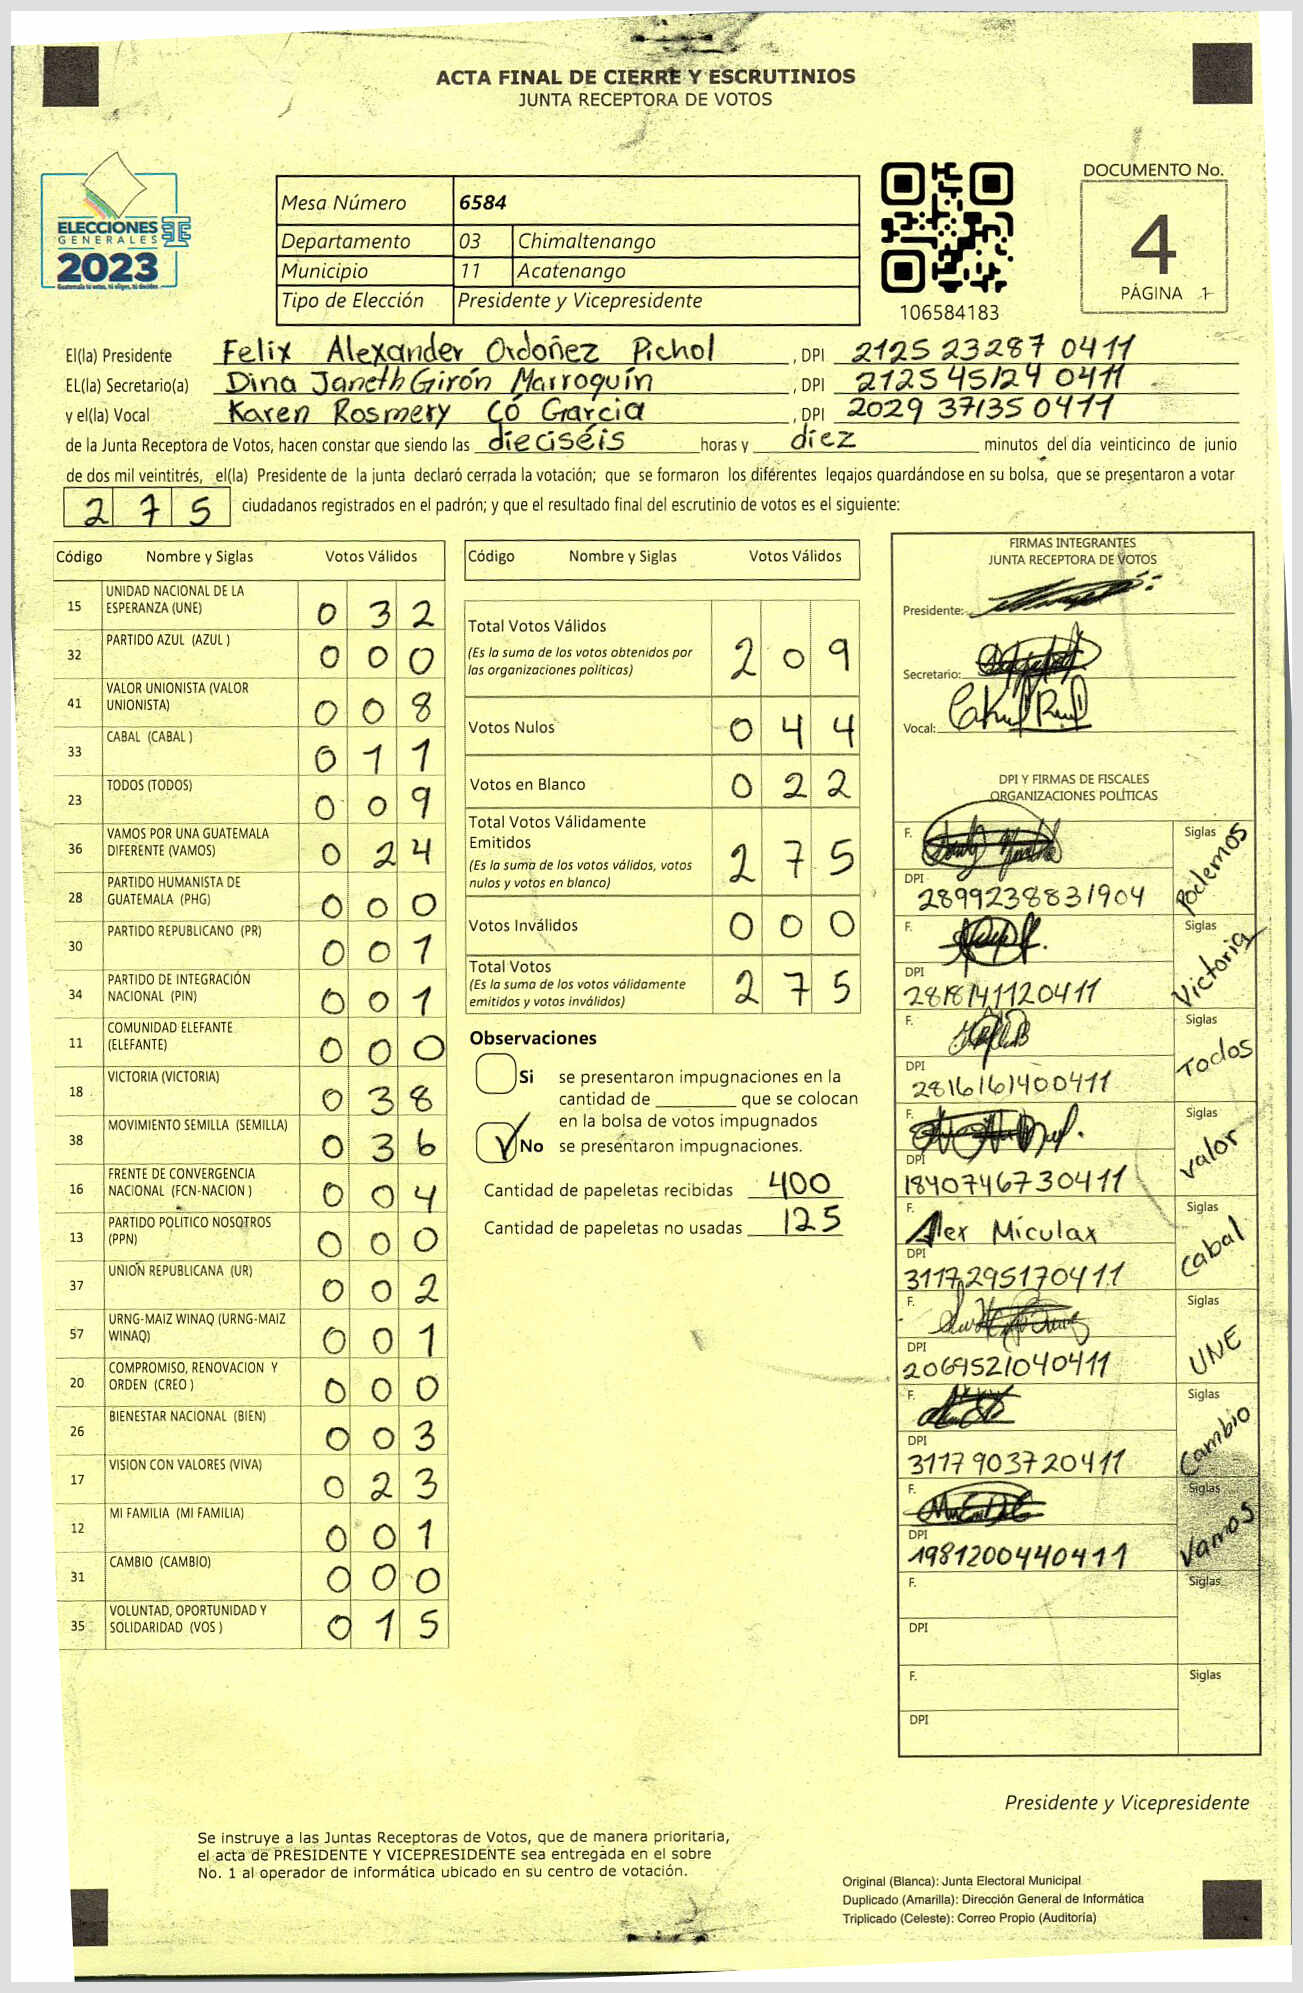 ACTA FINAL DE CIERRE Y ESCRUTINIOS
JUNTA RECEPTORA DE VOTOS
ELECCIONES
GENERALES
2023
Guatemala tú votas, tú eliges, tú decides
Mesa Número 6584
Departamento 03 Chimaltenango
Municipio 11 Acatenango
Tipo de Elección Presidente y Vicepresidente
106584183
DOCUMENTO No.
4
PÁGINA 1
El(la) Presidente Felix Alexander Ordoñez Pichol , DPI 2125 23287 0411
EL(la) Secretario(a) Dina Janeth Girón Marroquín , DPI 2125 45124 0411
y el(la) Vocal Karen Rosmery Có Garcia , DPI 2029 37135 0411
de la Junta Receptora de Votos, hacen constar que siendo las dieciséis horas y diez minutos del día veinticinco de junio
de dos mil veintitrés, el(la) Presidente de la junta declaró cerrada la votación; que se formaron los diferentes legajos guardándose en su bolsa, que se presentaron a votar
275 ciudadanos registrados en el padrón; y que el resultado final del escrutinio de votos es el siguiente:
Código Nombre y Siglas Votos Válidos
15 UNIDAD NACIONAL DE LA ESPERANZA (UNE) 032
32 PARTIDO AZUL (AZUL ) 000
41 VALOR UNIONISTA (VALOR UNIONISTA) 008
33 CABAL (CABAL ) 011
23 TODOS (TODOS) 009
36 VAMOS POR UNA GUATEMALA DIFERENTE (VAMOS) 024
28 PARTIDO HUMANISTA DE GUATEMALA (PHG) 000
30 PARTIDO REPUBLICANO (PR) 001
34 PARTIDO DE INTEGRACIÓN NACIONAL (PIN) 001
11 COMUNIDAD ELEFANTE (ELEFANTE) 000
18 VICTORIA (VICTORIA) 038
38 MOVIMIENTO SEMILLA (SEMILLA) 036
16 FRENTE DE CONVERGENCIA NACIONAL (FCN-NACION ) 004
13 PARTIDO POLÍTICO NOSOTROS (PPN) 000
37 UNIÓN REPUBLICANA (UR) 002
57 URNG-MAIZ WINAQ (URNG-MAIZ WINAQ) 001
20 COMPROMISO, RENOVACION Y ORDEN (CREO ) 000
26 BIENESTAR NACIONAL (BIEN) 003
17 VISION CON VALORES (VIVA) 023
12 MI FAMILIA (MI FAMILIA) 001
31 CAMBIO (CAMBIO) 000
35 VOLUNTAD, OPORTUNIDAD Y SOLIDARIDAD (VOS ) 015
Código Nombre y Siglas Votos Válidos
Total Votos Válidos 209
(Es la suma de los votos obtenidos por
las organizaciones políticas)
Votos Nulos 044
Votos en Blanco 022
Total Votos Válidamente
Emitidos 275
(Es la suma de los votos válidos, votos
nulos y votos en blanco)
Votos Inválidos 000
Total Votos 275
(Es la suma de los votos válidamente
emitidos y votos inválidos)
Observaciones
Si se presentaron impugnaciones en la
cantidad de ________ que se colocan
en la bolsa de votos impugnados
No se presentaron impugnaciones.
Cantidad de papeletas recibidas 400
Cantidad de papeletas no usadas 125
FIRMAS INTEGRANTES
JUNTA RECEPTORA DE VOTOS
Presidente:
Secretario:
Vocal:
DPI Y FIRMAS DE FISCALES
ORGANIZACIONES POLÍTICAS
F. Siglas Podemos
DPI 2899238831904
F. Siglas Victoria
DPI 2818141120411
F. Siglas Todos
DPI 2816161400411
F. Siglas valor
DPI 1840746730411
F. Alex Miculax Siglas cabal
DPI 3117295170411
F. Siglas UNE
DPI 2069521040411
F. Siglas Cambio
DPI 3117903720411
F. Siglas Vamos
DPI 1981200440411
F. Siglas
DPI
F. Siglas
DPI
Presidente y Vicepresidente
Se instruye a las Juntas Receptoras de Votos, que de manera prioritaria,
el acta de PRESIDENTE Y VICEPRESIDENTE sea entregada en el sobre
No. 1 al operador de informática ubicado en su centro de votación.
Original (Blanca): Junta Electoral Municipal
Duplicado (Amarilla): Dirección General de Informática
Triplicado (Celeste): Correo Propio (Auditoría)